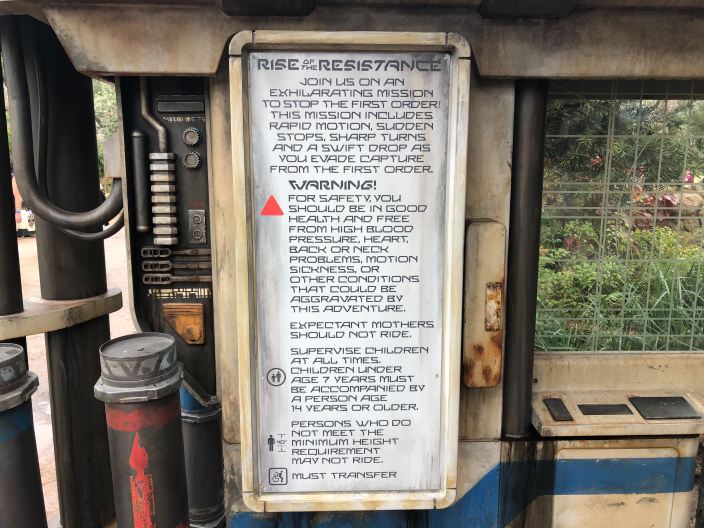 RISE OF THE RESISTANCE
JOIN US ON AN
EXHILARATING MISSION
TO STOP THE FIRST ORDER!
THIS MISSION INCLUDES
RAPID MOTION, SUDDEN
STOPS, SHARP TURNS
AND A SWIFT DROP AS
YOU EVADE CAPTURE
FROM THE FIRST ORDER.
WARNING!
FOR SAFETY, YOU
SHOULD BE IN GOOD
HEALTH AND FREE
FROM HIGH BLOOD
PRESSURE, HEART,
BACK OR NECK
PROBLEMS, MOTION
SICKNESS, OR
OTHER CONDITIONS
THAT COULD BE
AGGRAVATED BY
THIS ADVENTURE.
EXPECTANT MOTHERS
SHOULD NOT RIDE.
SUPERVISE CHILDREN
AT ALL TIMES.
CHILDREN UNDER
AGE 7 YEARS MUST
BE ACCOMPANIED BY
A PERSON AGE
14 YEARS OR OLDER.
PERSONS WHO DO
NOT MEET THE
MINIMUM HEIGHT
REQUIREMENT
MAY NOT RIDE.
MUST TRANSFER